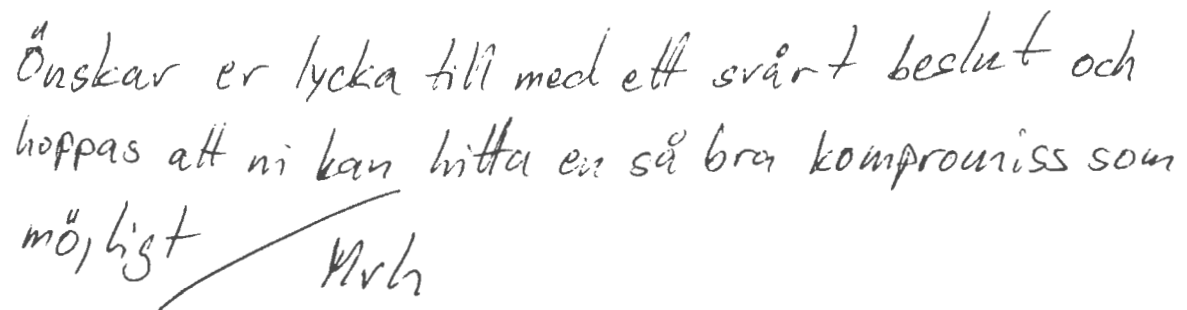 Önskar er lycka till med ett svårt beslut och
hoppas att ni kan hitta en så bra kompromiss som
möjligt
Mvh